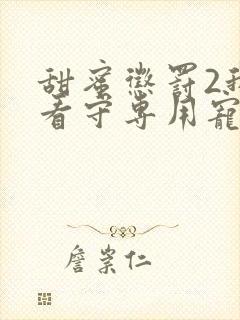 甜蜜懲罰2我
看守專用寵
詹崇仁